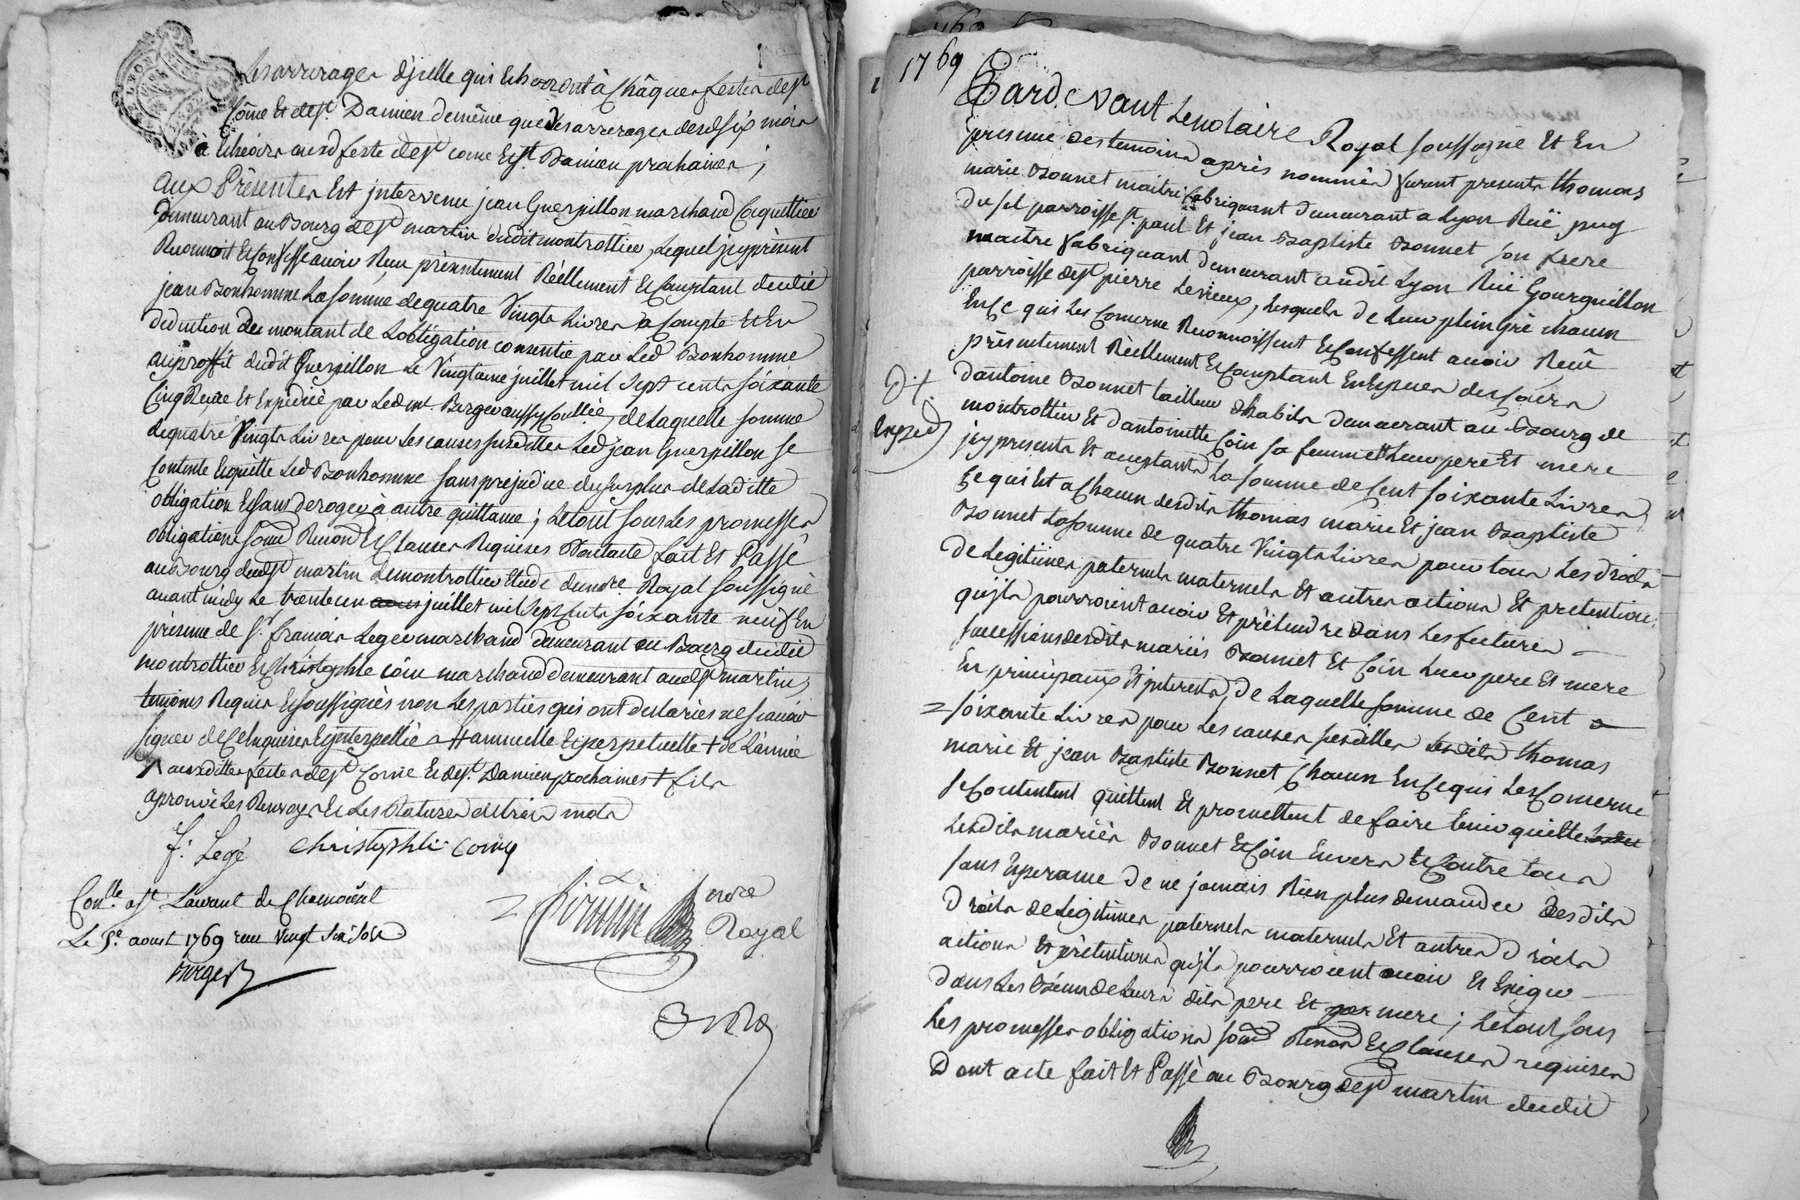 Les arrerages d'jcelle qui Echoront à Châques festes de st
Côme Et de st. Damien de même que Les arrerages desd six mois
à Echéoir auxd feste de st come Et st. Damien prochaines ;
Aux Présentes Est jntervenu jean Guerpillon marchand Coquettier
Demeurant au Bourg de st martin dudit montrottier, Lequel jcy présent
Reconnoit Et Confesse avoir Reçu présentement Réellement Et Comptant dudit
jean Bonhomme La somme de quatre Vingts Livres à Compte Et En
Deduction du montant de L'obligation consentie par Led Bonhomme
au proffit dudit Guerpillon Le Vingtième juillet mil sept cents soixante
Cinq Reçue Et Expédiée par Led me. Berger aussy Conllée, de Laquelle somme
de quatre Vingts Livres pour Les causes susdittes Led jean Guerpillon se
Contente Et quitte Led Bonhomme sans prejudice du surplus de Laditte
obligation Et sans deroger à autre quittance ; Le tout sous Les promesses
obligations soumd Renond Et Clauses Requises Dont acte fait Et Passé
au Bourg dudst martin De montrottier Etude du nore. Royal soussigné
avant midy Le trente un aous juillet mil sept cents soixante neuf En
présence de Sr. françois Leger marchand Demeurant au Bourg dudit
montrottier Et Christophle Coin marchand demeurant aud st martin,
temoins Requis Et soussignés non Les parties qui ont declarées ne scavoir
signer de Ce Enquises Et jnterpellée # annuelle Et perpetuelle + de L'année
auxdittes festes de st Come Et de st. Damien prochaines + fils
aprouvé Les Renvoys Et Les Ratures de trois mots
f: Legé Christophle coing
Conlle. a st. Laurent de Chamouset
Le 5e. aoust 1769 reçu Vingt six sols
Berger
nore
Royal
1769
Pardevant Le notaire Royal soussigné Et En
présence des temoins après nommés furent presents thomas
marie Bonnet maitre fabriquant demeurant a Lyon Ruë puy
du sel parroisse st. paul Et jean Baptiste Bonnet son frere
maitre fabriquant demeurant audit Lyon Ruë Gourguillon
parroisse de st pierre Le vieux, Lesquels de Leur plein Gré chacun
En Ce qui Les Concerne Reconnoissent Et Confessent avoir Reçu
présentement Réellement Et Comptant En Especes du Cours
D'antoine Bonnet tailleur D'habits demeurant au Bourg de
montrottier Et d'antoinette Coin sa femme Leur pere Et mere
jcy presents Et acceptants La somme de Cent soixante Livres
Ce qui Est a Chacun desdits thomas marie Et jean Baptiste
Bonnet La somme de quatre Vingts Livres pour tous Les droits
De Legitimes paternels maternels Et autres actions Et pretentions
qu'jls pourroient avoir Et prétendre Dans Les futures
successions desdits mariés Bonnet Et Coin Leur pere Et mere
En principaux Et jnterets, de Laquelle somme de Cent
soixante Livres pour Les causes susdittes Lesdits thomas
marie Et jean Baptiste Bonnet Chacun En Ce qui Les Concerne
se Contentent quittent Et promettent de faire tenir quitte Lesdit
Lesdits mariés Bonnet Et Coin Envers Et Contre tous
sans Esperance de ne jamais Rien plus demander Desdits
Droits de Legitimes paternels maternels Et autres droits
actions Et prétentions qu'jls pourroient avoir Et Exiger
Dans Les Biens de Leurs dits pere Et par mere ; Le tout sous
Les promesses obligations soumd Renond Et Clauses requises
Dont acte fait Et Passé au Bourg de st martin dudit